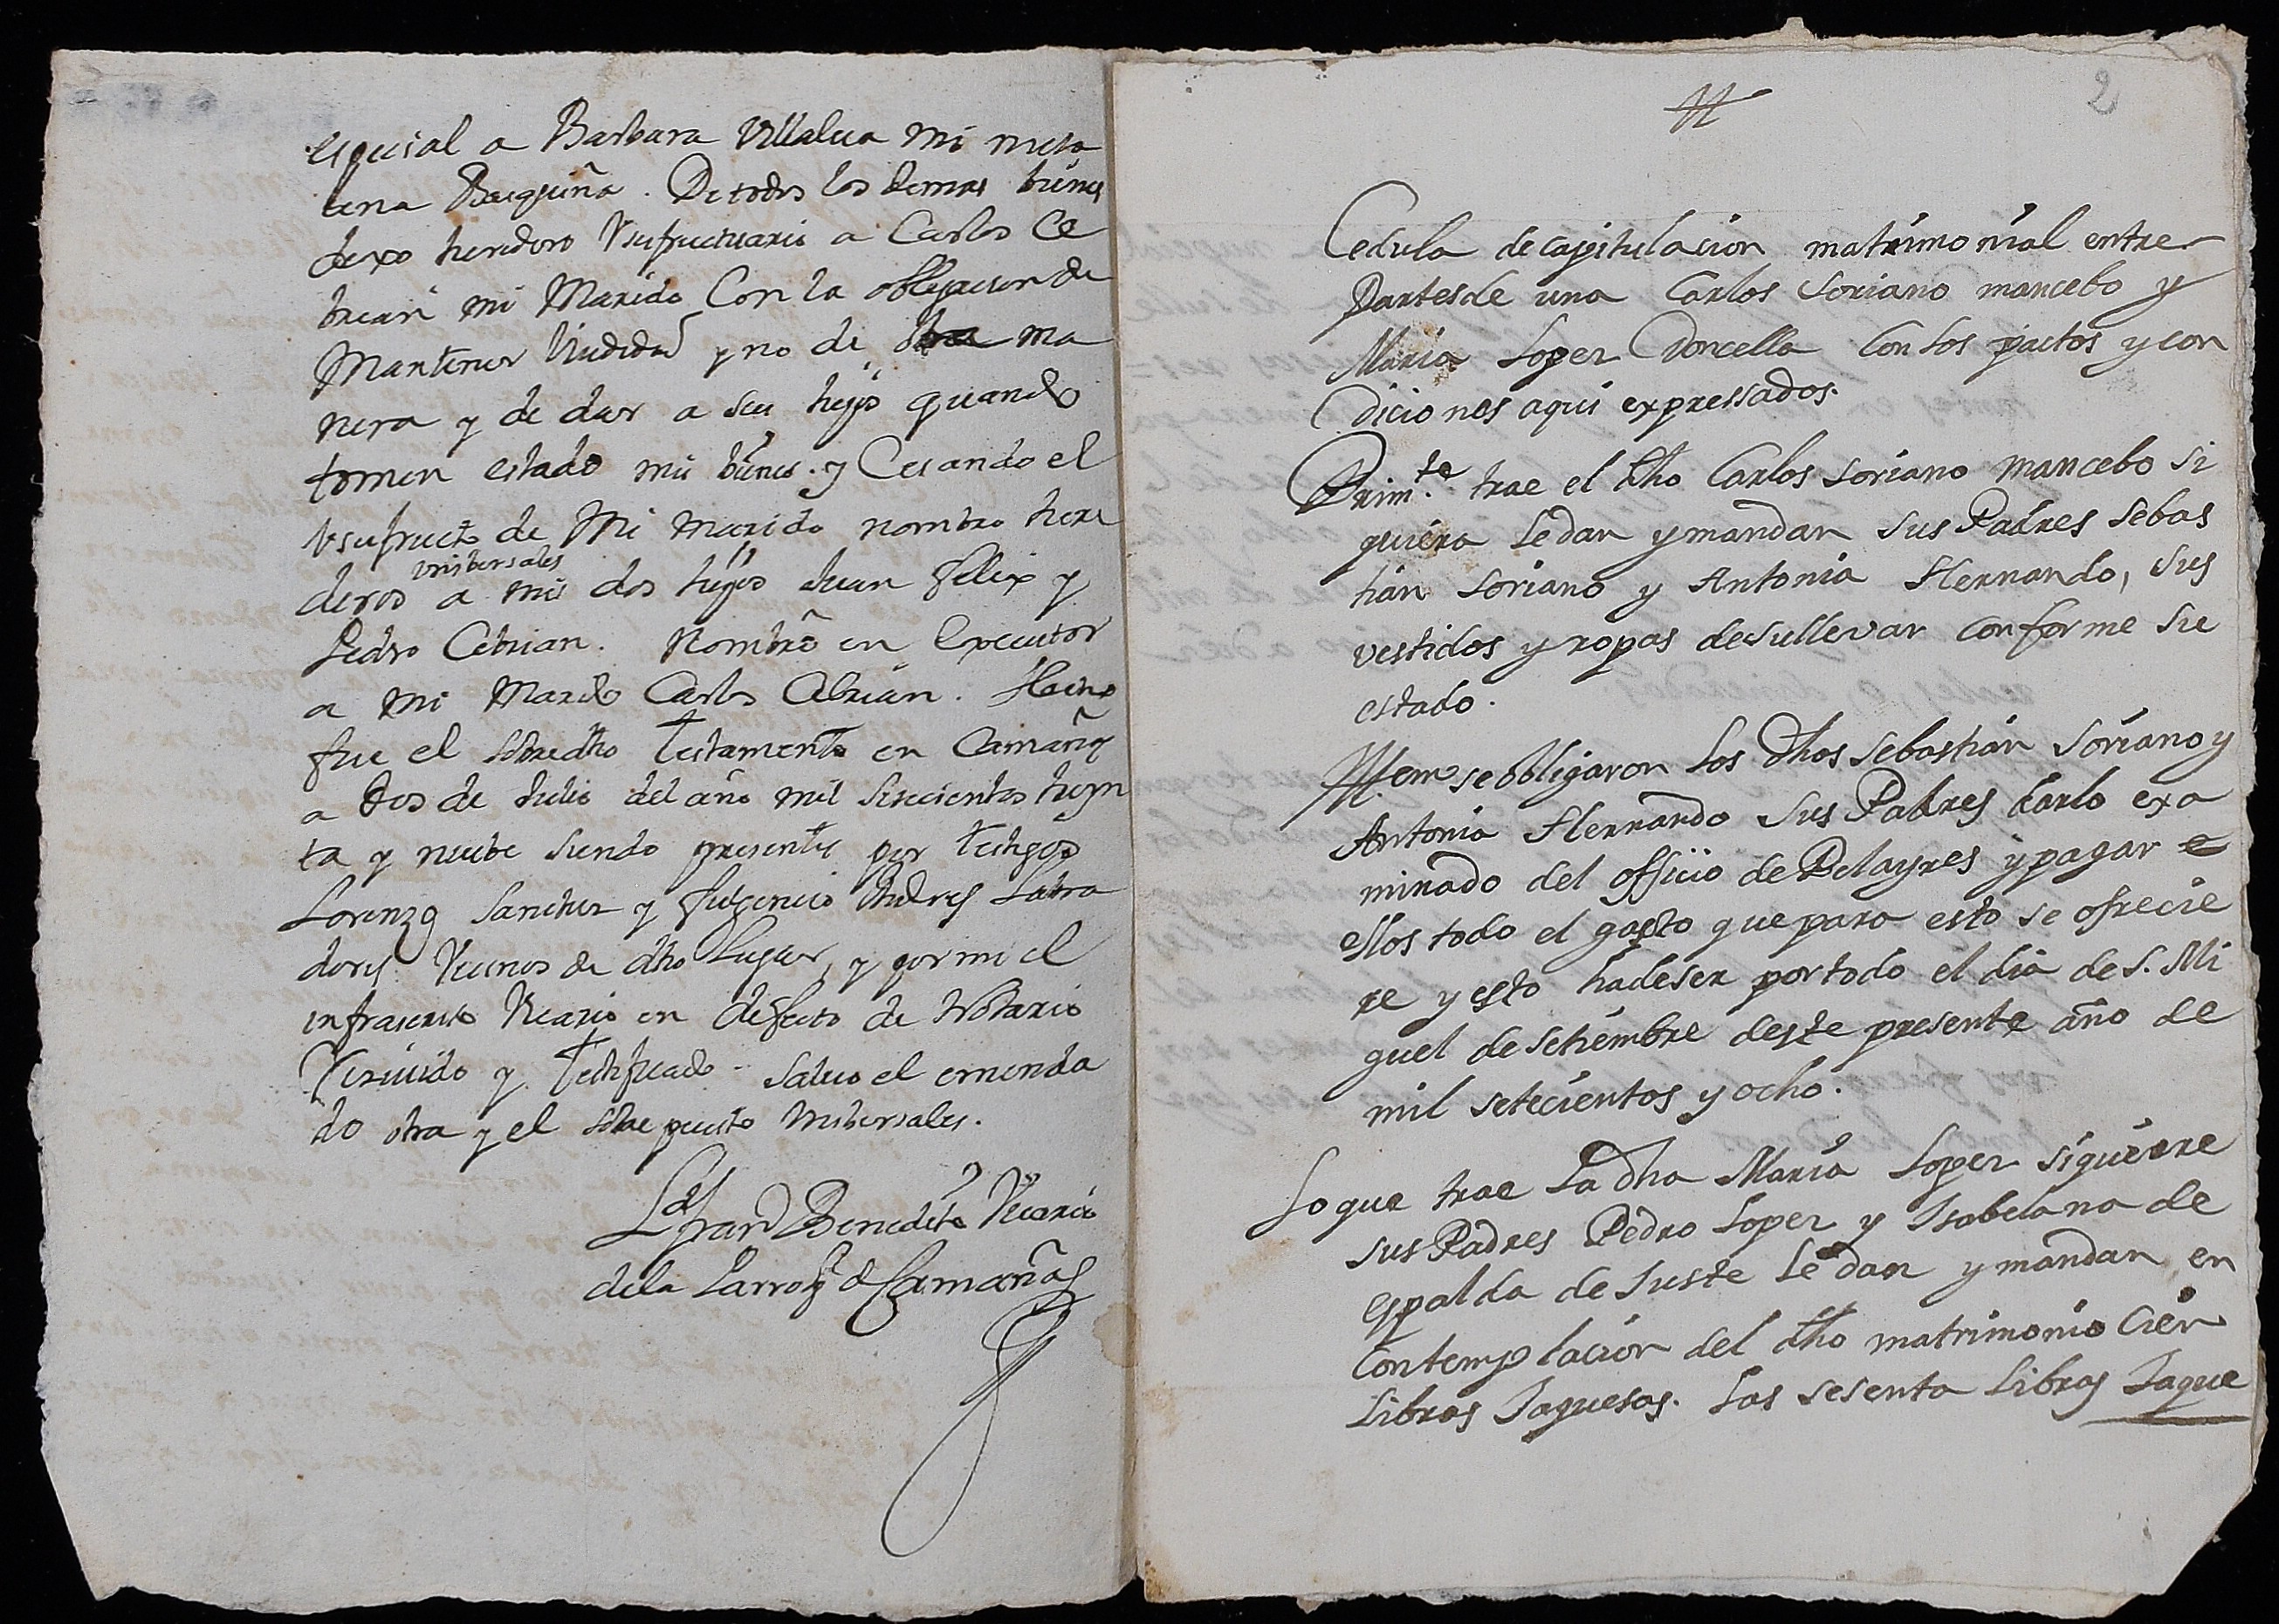 especial a Barbara Villalua mi nieta
una Basquiña. De todos los demas bienes
dexo heredero Vsufructuario a Carlos Ce
brian mi Marido Con la obligacion de
Mantener Viudedad y no de otra ma
nera y de dar a sus hijos quando
tomen estado mis bienes. y Cesando el
Vsufructo de Mi Marido nombro here
deros vnibersales a mis dos hijos Juan felix y
Pedro Cebrian. Nombro en Executor
a mi Marido Carlos Cebrian. Hecho
fue el sobredho Testamento en Camañas
a dos de Julio del año mil setecientos treyn
ta y nuebe siendo presentes por testigos
Lorenzo Sanchez y fulgencio Andres Labra
dores Vecinos de dho Lugar, y por mi el
infrascrito Vicario en defecto de Notario
Reciuido y Testificado - Saluo el enmenda
do otra y el sobre puesto Vnibersales.
Ldo fran Benedito Vicario
de la Parroql de Camañas
2
Cedula de capitulacion matrimonial entre
Partes de una Carlos Soriano mancebo y
Maria Loper Doncella Con los pactos y con
diciones aqui expressados.
Prim.te trae el dho Carlos Soriano mancebo si
quiera le dan y mandan sus Padres Sebas
tian Soriano y Antonia Hernando, sus
vestidos y ropas de su llevar conforme su
estado.
Ittem se obligaron los dhos Sebastian Soriano y
Antonia Hernando sus Padres darlo exa
minado del officio de Pelayres y pagar e
ellos todo el gasto que para esto se ofrecie
re y esto ha de ser por todo el dia de S. Mi
guel de setiembre deste presente año de
mil setecientos y ocho.
Lo que trae la dha Maria Loper siquiere
sus Padres Pedro Loper y Isabel ana de
espalda de Juste le dan y mandan en
Contemplacion del dho matrimonio Cien
Libras Jaquesas. Las sesenta Libras Jaque